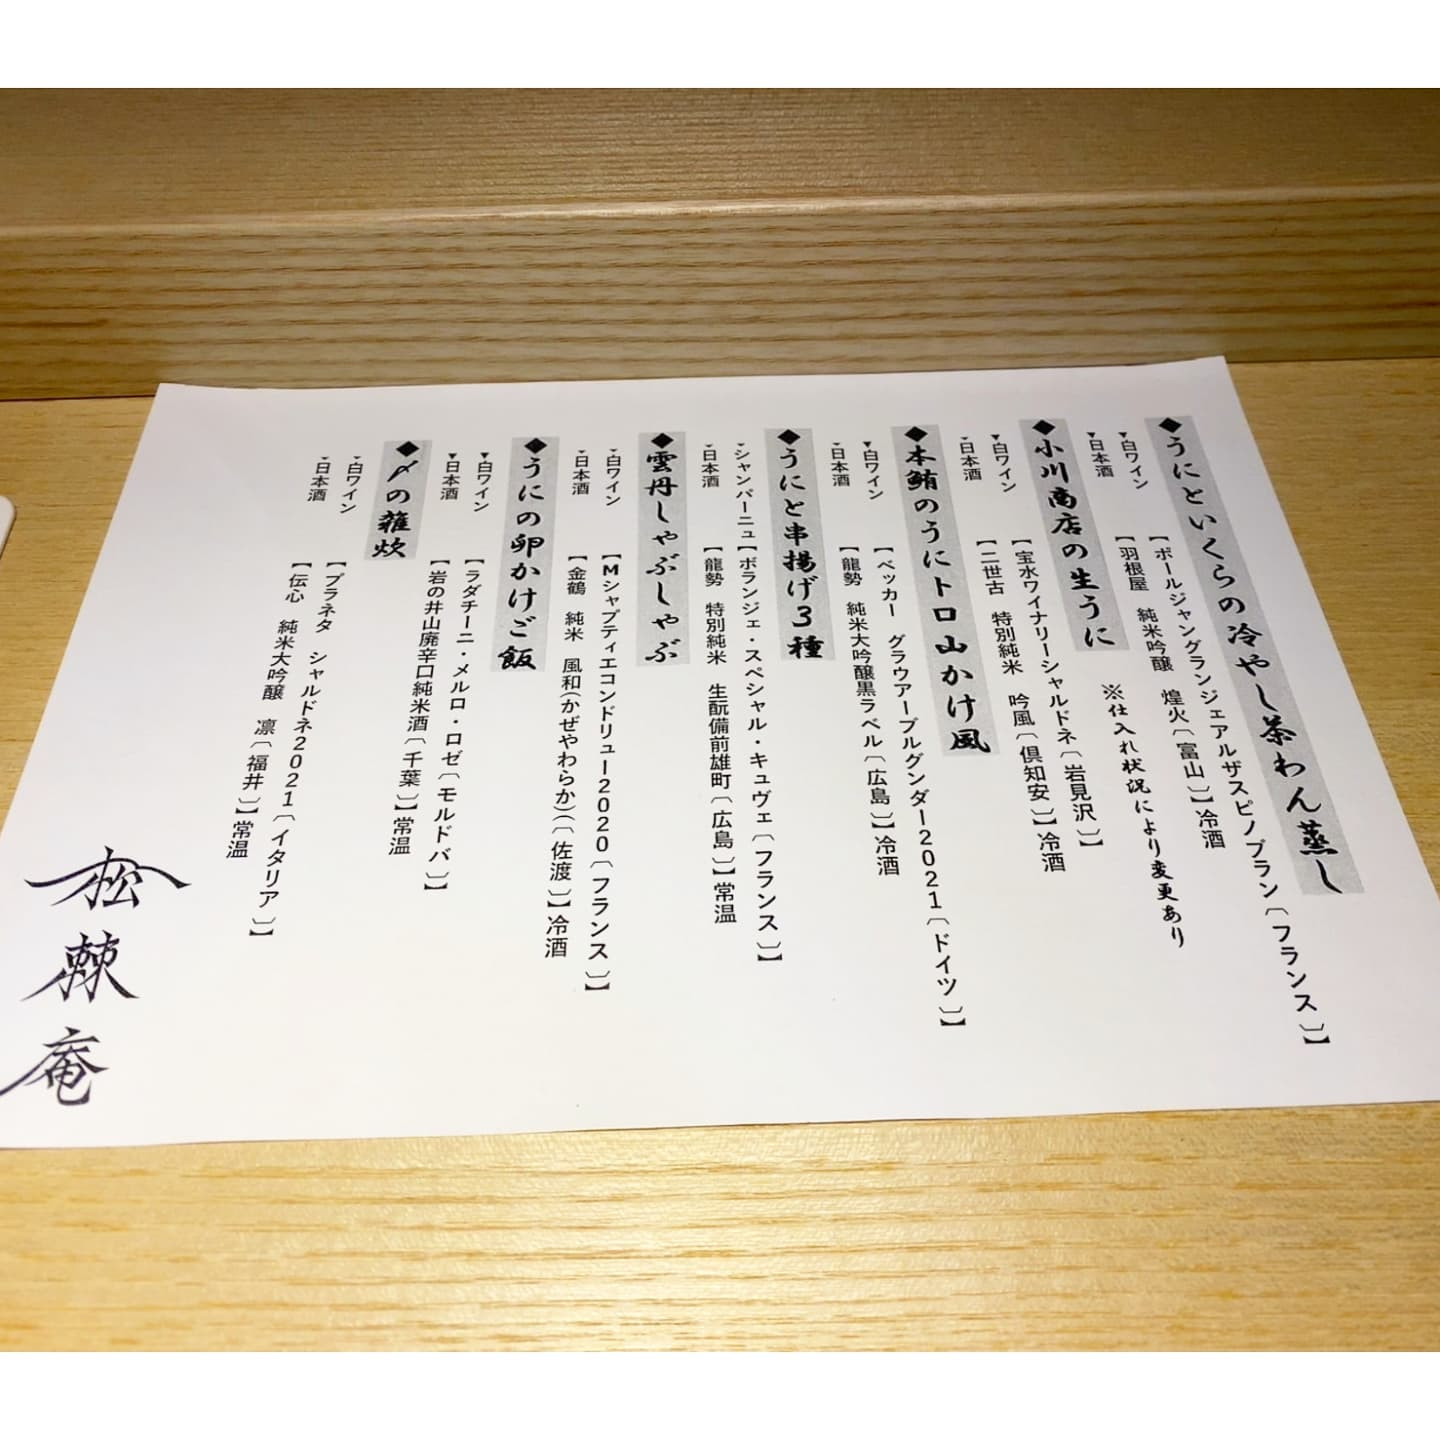 ◆うにといくらの冷やし茶わん蒸し
▼白ワイン 【ポールジャングランジェアルザスピノブラン〔フランス〕】
▼日本酒 【羽根屋 純米吟醸 煌火〔富山〕】冷酒
◆小川商店の生うに ※仕入れ状況により変更あり
▼白ワイン 【宝水ワイナリーシャルドネ〔岩見沢〕】
▼日本酒 【二世古 特別純米 吟風〔倶知安〕】冷酒
◆本鮪のうにトロ山かけ風
▼白ワイン 【ベッカー グラウアーブルグンダー2021〔ドイツ〕】
▼日本酒 【龍勢 純米大吟醸黒ラベル〔広島〕】冷酒
◆うにと串揚げ3種
▼シャンパーニュ【ボランジェ・スペシャル・キュヴェ〔フランス〕】
▼日本酒 【龍勢 特別純米 生酛備前雄町〔広島〕】常温
◆雲丹しゃぶしゃぶ
▼白ワイン 【Mシャプティエコンドリュー2020〔フランス〕】
▼日本酒 【金鶴 純米 風和(かぜやわらか)〔佐渡〕】冷酒
◆うにの卵かけご飯
▼白ワイン 【ラダチーニ・メルロ・ロゼ〔モルドバ〕】
▼日本酒 【岩の井山廃辛口純米酒〔千葉〕】常温
◆〆の雑炊
▼白ワイン 【プラネタ シャルドネ2021〔イタリア〕】
▼日本酒 【伝心 純米大吟醸 凛〔福井〕】常温
松棘庵